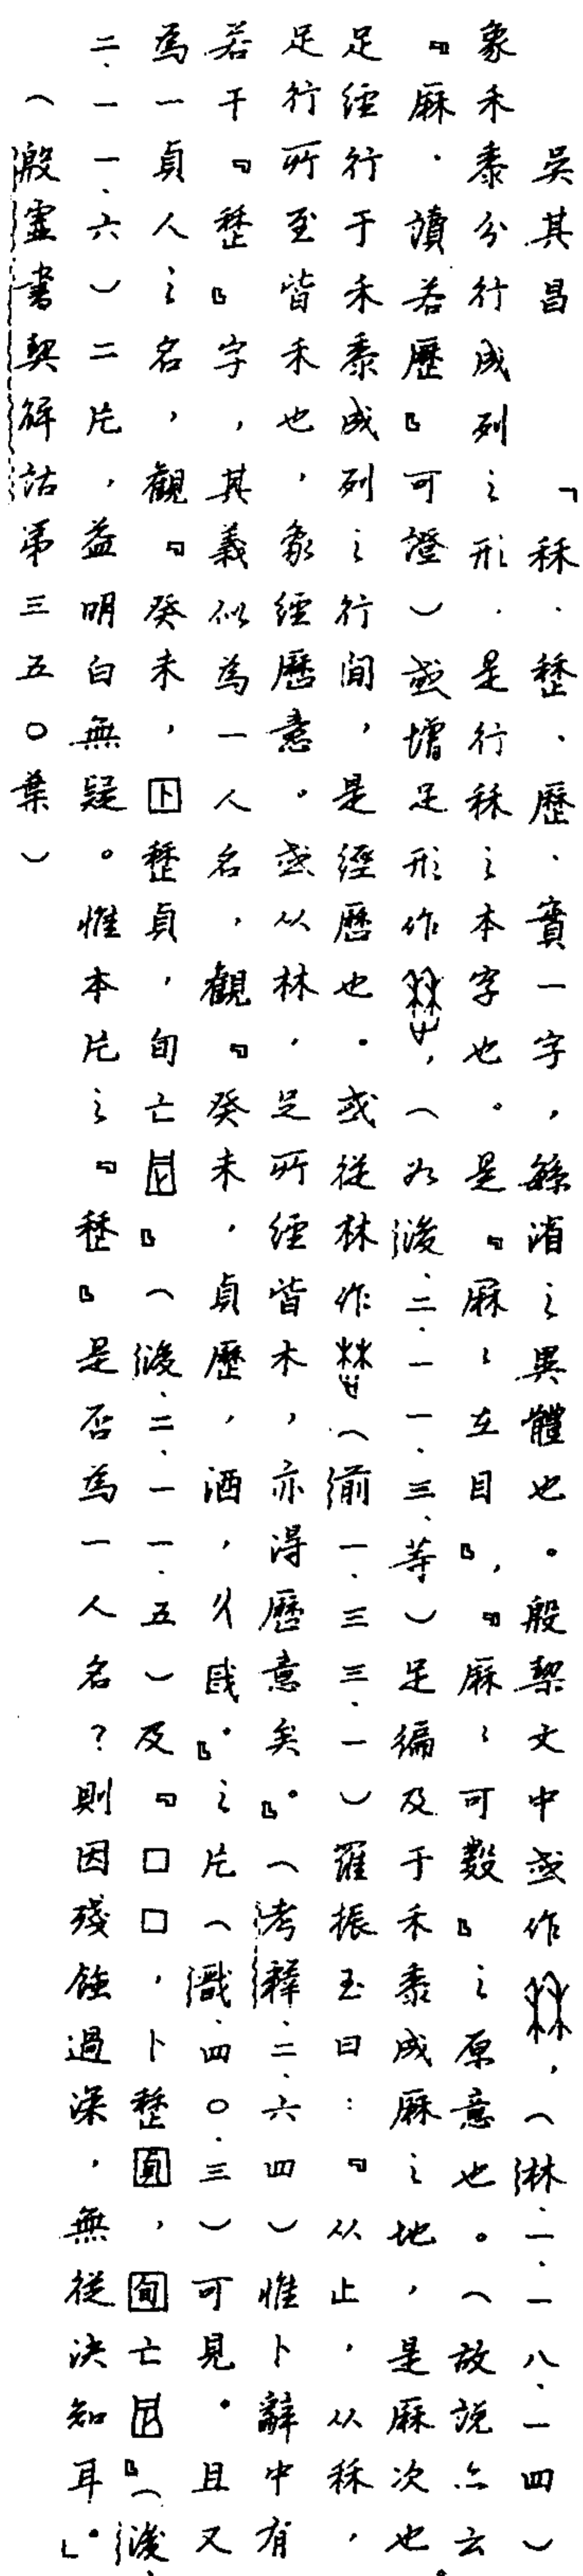 吳其昌　「秝．𣥕、歷．實一字，緐消之異體也。殷契文中或作，（淋一、一八、一四）
象禾黍分行成列之形．是行秝之本字也。是『厤厤在目』，『厤厤可數』之原意也。（故說亦云
『厤．讀若歷』可證）或增足形作，（如後二．一一．三、等）足徧及于禾黍成厤之地，是厤次也。
足經行于禾黍成列之行間，是經曆也。或從林作（前一．三三．一）羅振玉曰：『从止，从秝，
足行所至皆禾也，象經曆意。或从林，足所經皆木，亦得歷意矣。』（考釋二．六四）惟卜辭中有
若干『𣥕』字，其義似為一人名，觀『癸未，貞歷，酒，彳戓。』之片（戩．四〇．三）可見。且又
為一貞人之名，觀『癸未，卜𣥕貞，旬亡𡆥』（後二．一一．五）及『□□，卜𣥕貞，旬亡𡆥』（後
二．一一．六）二片，益明白無疑。惟本片之『𣥕』是否為一人名？則因殘蝕過深，無從決知耳。」
（殷虛書契解詁第三五〇葉）